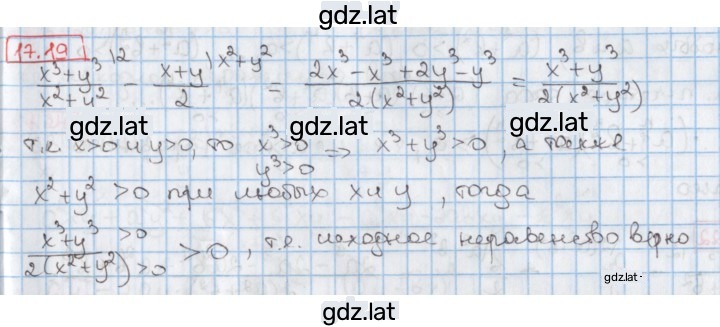 gdz.lat
17.19
(x³+y³)/(x²+y²) |2 − (x+y)/2 |x²+y² = (2x³−x³+2y³−y³)/(2(x²+y²)) = (x³+y³)/(2(x²+y²))
gdz.lat gdz.lat
т.к. x>0 и y>0, то x³>0 y³>0 ⇒ x³+y³>0, а также
gdz.lat gdz.lat
x²+y²>0 при любых x и y, тогда
(x³+y³ >0)/(2(x²+y²) >0) > 0, т.е. исходное неравенство верно
gdz.lat
gdz.lat